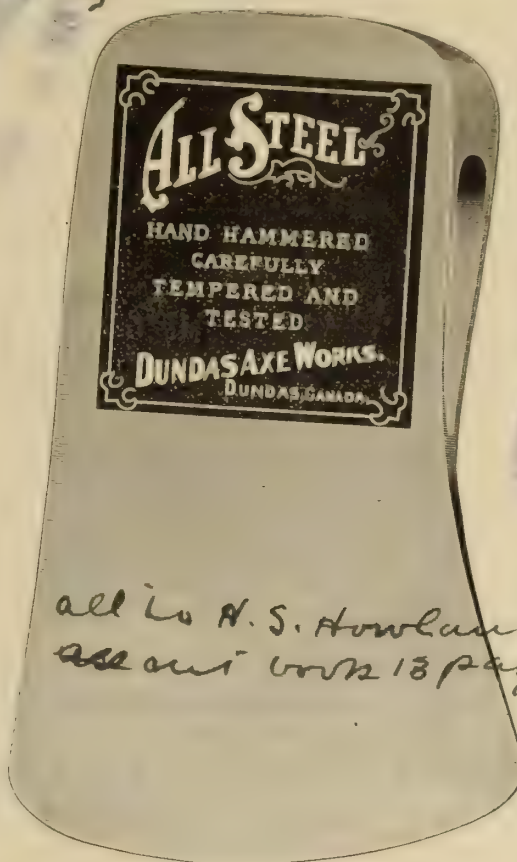 ALL STEEL
HAND HAMMERED
CAREFULLY
TEMPERED AND
TESTED
DUNDAS AXE WORKS.
DUNDAS, CANADA.
all to H. S. Howlan
out book 13 pa